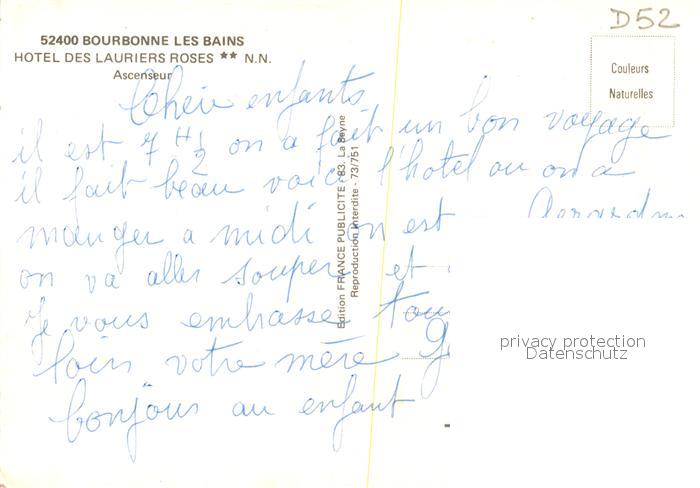 D52
52400 BOURBONNE LES BAINS
HOTEL DES LAURIERS ROSES ** N.N.
Ascenseur
Couleurs
Naturelles
Edition FRANCE PUBLICITE - 83. La Seyne
Reproduction Interdite - 73/751
Cheir enfants
il est 7 H ½ on a fait un bon voyage
il fait beau voici l'hotel ou on a
manger a midi on est
on va aller souper et
Je vous embrasse tous
loin votre mère
bonjour au enfant
privacy protection
Datenschutz